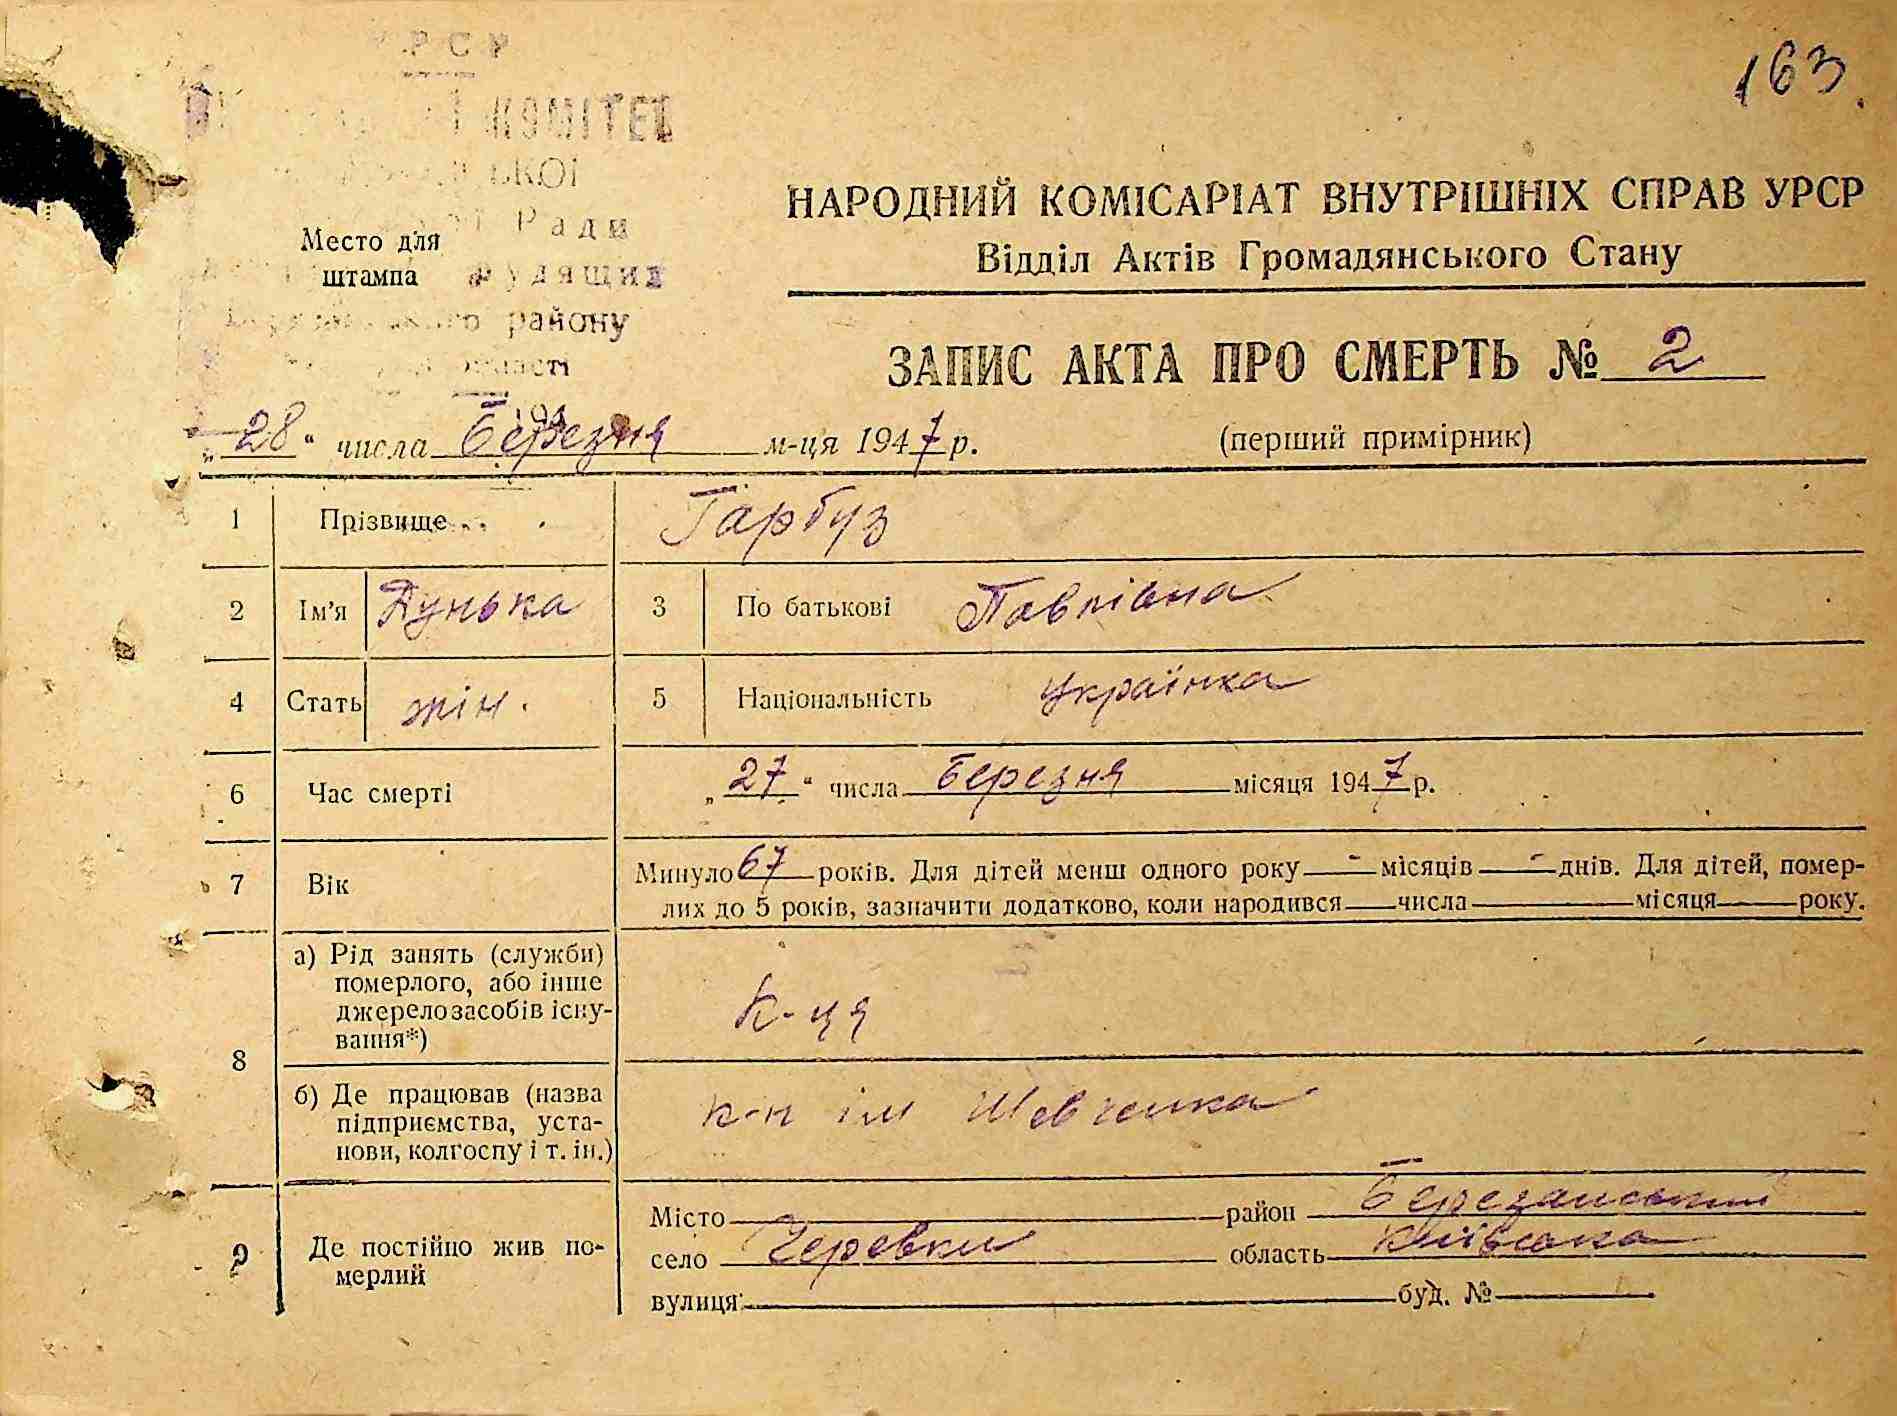 163
УРСР
КОМІТЕТ
Ради
трудящих
району
області
Место для
штампа
НАРОДНИЙ КОМІСАРІАТ ВНУТРІШНІХ СПРАВ УРСР
Відділ Актів Громадянського Стану
ЗАПИС АКТА ПРО СМЕРТЬ № 2
„28“ числа Березня м-ця 1947 р.
(перший примірник)
1 Прізвище Гарбуз
2 Ім’я Дунька 3 По батькові Павлівна
4 Стать жін. 5 Національність Українка
6 Час смерті „27“ числа Березня місяця 1947 р.
7 Вік Минуло 67 років. Для дітей менш одного року - місяців - днів. Для дітей, помер-
лих до 5 років, зазначити додатково, коли народився числа місяця року.
8 а) Рід занять (служби)
померлого, або інше
джерело засобів існу-
вання*)
К-ця
б) Де працював (назва
підприємства, уста-
нови, колгоспу і т. ін.)
к-п ім Шевченка
9 Де постійно жив по-
мерлий
Місто район Березанський
село Черевки область Київська
вулиця буд. №